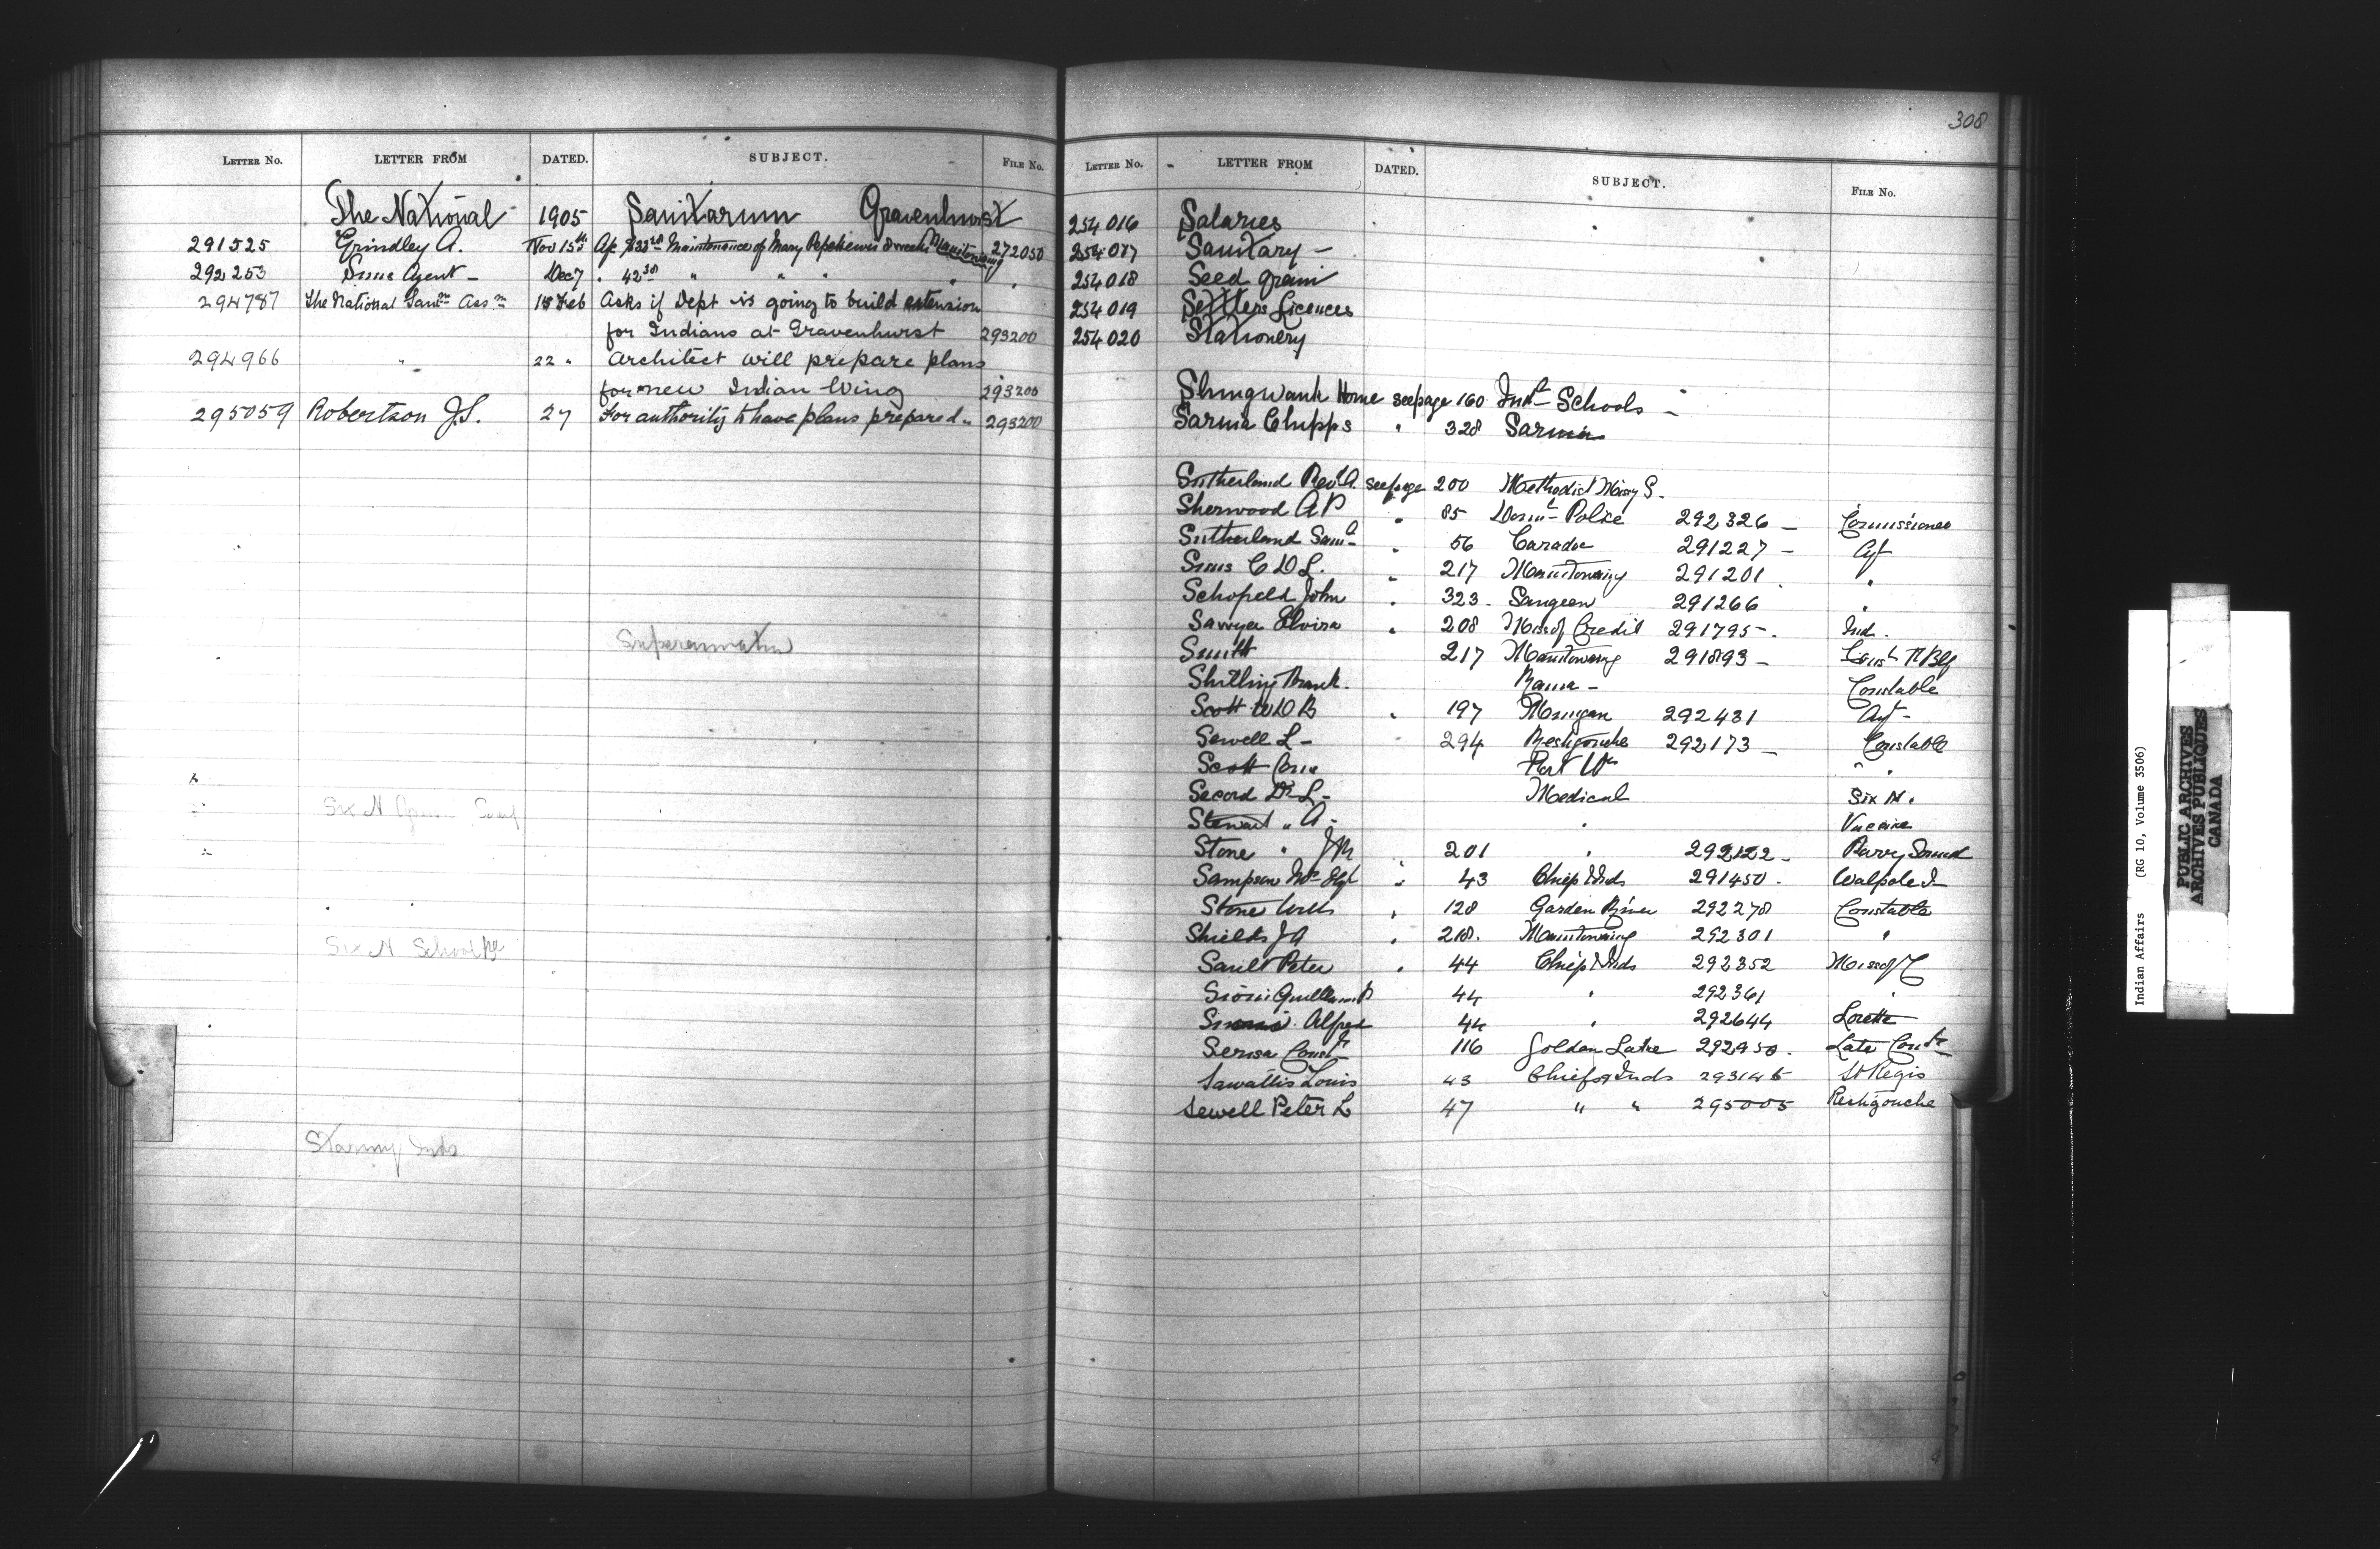 LETTER NO. LETTER FROM DATED. SUBJECT. FILE NO.
The National 1905 Sanitarium Gravenhurst
291525 Grindley A. Nov 15th Maintenance of Mary 272050
292253 Sims Agent - Dec 7 " 42 " " " "
294787 The National Sanm Assn 15 Feb Asks if Dept is going to build extension
for Indians at Gravenhurst 293200
294966 " 22 " Architect will prepare plans
for new Indian Wing 293200
295059 Robertson J.S. 27 For authority to have plans prepared " 293200
Superannuation
Six N
Six N School
308
LETTER NO. LETTER FROM DATED. SUBJECT. FILE NO.
254016 Salaries
254017 Sanitary -
254018 Seed grain
254019 Settlers Licences
254020 Stationery
Shingwauk Home see page 160 Indl Schools -
Sarnia Chipps " 328 Sarnia
Sutherland Rev A. see page 200 Methodist Missy S.
Sherwood A P " 85 Domn Police 292326 - Commissioner
Sutherland Saml " 56 Caradoc 291227 - Agt
Sims C D L. " 217 Manitowaning 291201 "
Schofield John " 323. Saugeen 291266 "
Sawyer Elvira " 208 Miss of Credit 291795 -. Ind.
Smith 217 Manitowaning 291893 -
Shilling Frank. Rama - Constable
Scott W D B " 197 292431 Agt -
Sewell L - " 294 Restigouche 292173 - Constable
Scott Port " "
Secord Dr L - Medical Six N.
Stewart " A - " Vaccine
Stone " J M 201 " 292122 - Parry Sound
Sampson " 43 Chiefs & Inds 291450 . Walpole I
Stone " 128 Garden River 292278 Constable
Shields J A " 218. Manitowaning 292301 "
Sault Peter " 44 Chiefs & Inds 292352 Miss of C
Sioui 44 " 292361 "
Alfred 44 " 292644 Lorette
Const 116 Golden Lake 292950 . Late Const
Sawattis Louis 43 Chiefs & Inds 293145 St Regis
Sewell Peter L 47 " " 295005 Restigouche
Indian Affairs (RG 10, Volume 3506)
PUBLIC ARCHIVES
ARCHIVES PUBLIQUES
CANADA